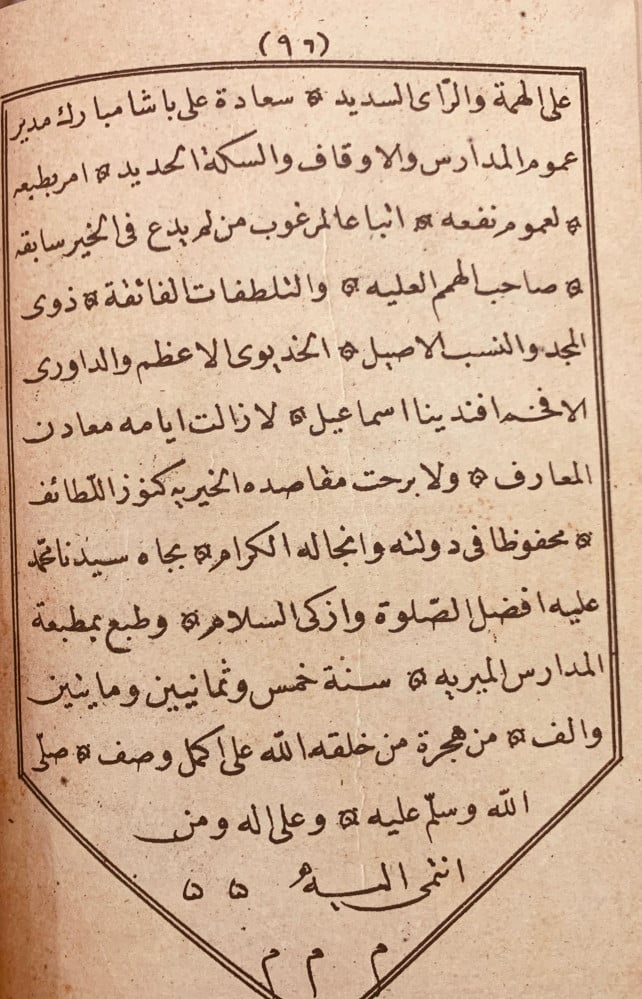 (٩٦)
على الهمة والرّاى السديد ۞ سعادة على باشا مبارك مدير
عموم المدارس والاوقاف والسكة الحديد ۞ امر بطبعه
۞ لعموم نفعه ۞ اتباعا لمرغوب من لم يدع فى الخير سابقه
۞ صاحب الهمم العليه ۞ والتلطفات الفائقة ۞ ذوى
المجد والنسب الاصيل ۞ الخديوى الاعظم والداورى
الافخم افندينا اسماعيل ۞ لازالت ايامه معادن
المعارف ۞ ولابرحت مقاصده الخيريه كنوز اللّطائف
۞ محفوظا فى دولته وانجاله الكرام ۞ بجاه سيدنا محمّد
عليه افضل الصّلوة وازكى السلام ۞ وطبع بمطبعة
المدارس الميريه ۞ سنة خمس وثمانيين وما يتين
والف ۞ من هجرة من خلقه اللّه على اكمل وصف ۞ صلّى
اللّه وسلّم عليه ۞ وعلى اله ومن
انتمى اليه ۵ ۵
م م م